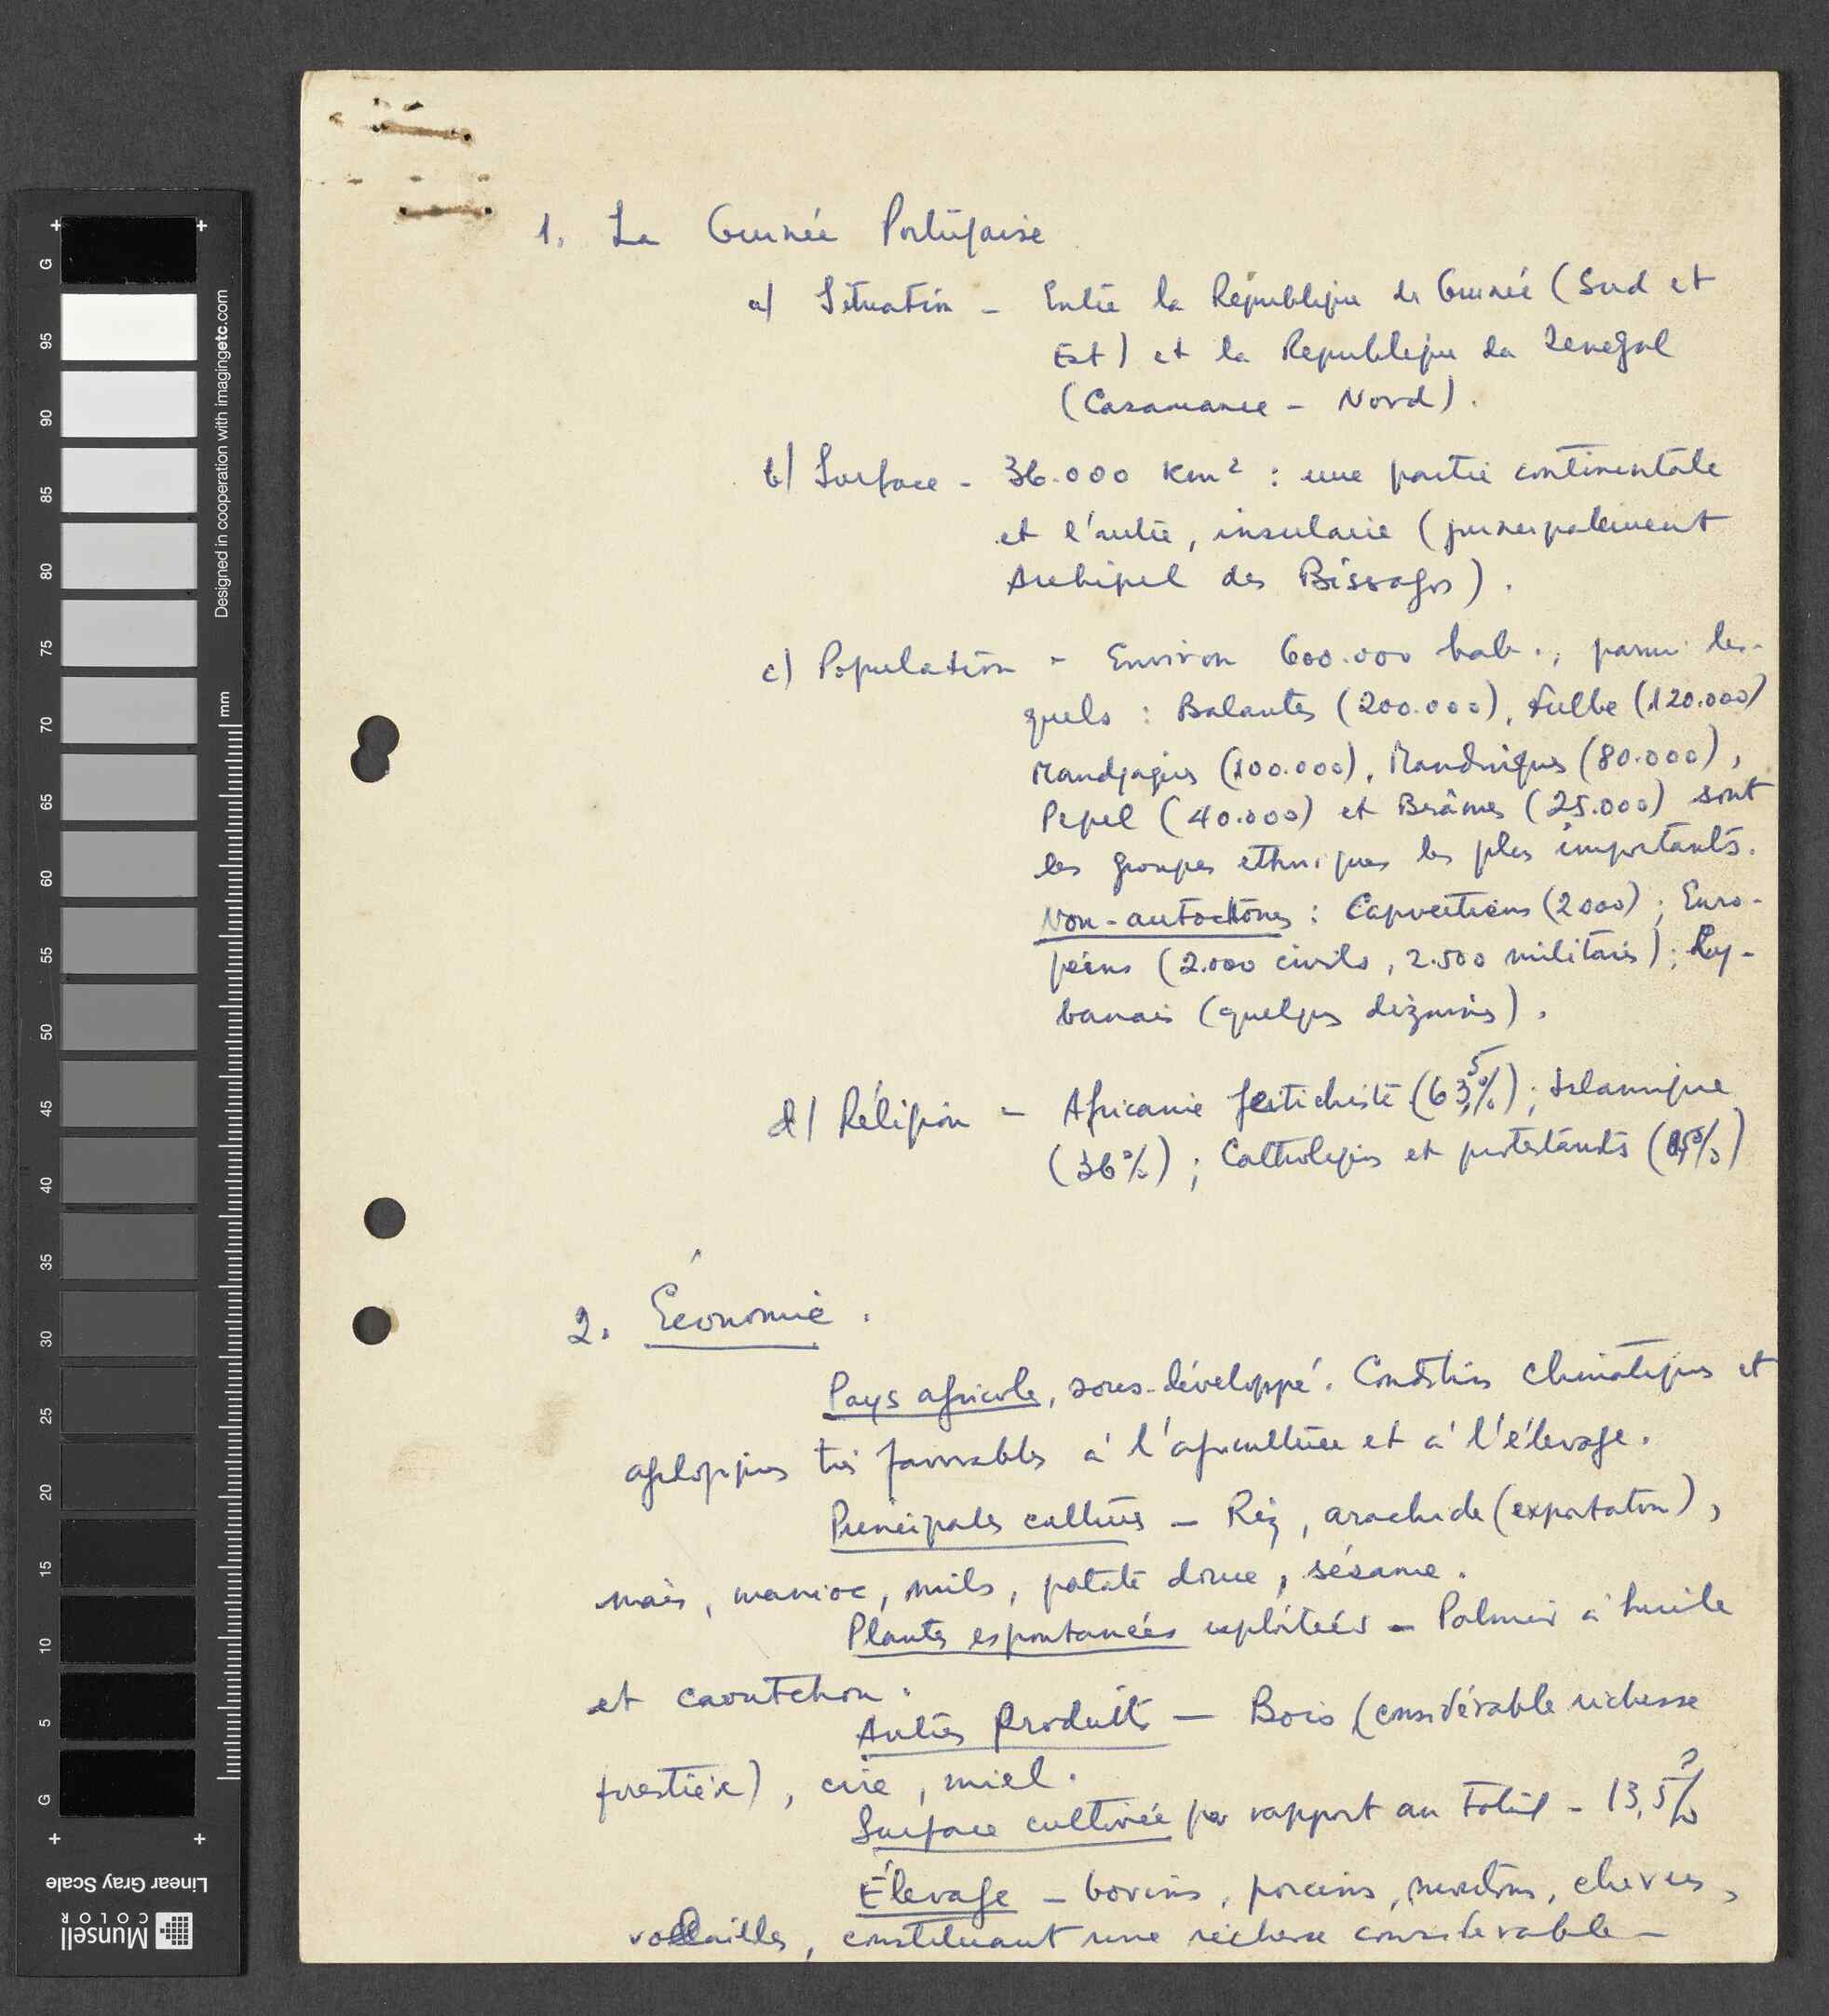 1. La Guinée Portugaise
a) Situation - Entre la République de Guinée (Sud et
Est) et la Republique du Senegal
(Casamance - Nord).
b) Surface - 36.000 Km² : une partie continentale
et l'autre, insulaire (principalement
Archipel des Bissagos).
c) Population - Environ 600.000 hab., parmi les-
quels : Balantes (200.000), Fulbe (120.000)
Mandjaques (100.000), Mandingues (80.000),
Pepel (40.000) et Brâmes (25.000) sont
les groupes ethniques les plus importants.
Non-autochtones : Capvertiens (2000) ; Euro-
péens (2.000 civils, 2.500 militaires) ; Ly-
banais (quelques dizaines).
d) Réligion - Africaine feitichiste (63,5%) ; Islamique
(36%) ; Catholiques et protestants (0,5%)
2. Économie.
Pays agricole, sous-développé. Conditions climatiques et
géologiques très favorables à l'agriculture et à l'élevage.
Principales cultures - Riz, arachide (exportation),
maïs, manioc, mils, patate douce, sésame.
Plantes espontanées exploitées - Palmier à huile
et caoutchou.
Autres produits - Bois (considérable richesse
forestière), cire, miel.
Surface cultivée par rapport au total - 13,5%
?
Élevage - bovins, porcins, moutons, chèvres,
volailles, constituant une richesse considerable -
G
95
90
85
80
75
70
65
60
55
50
45
40
35
30
25
20
15
10
5
G
mm
Designed in cooperation with imagingetc.com
Linear Gray Scale
Munsell
COLOR